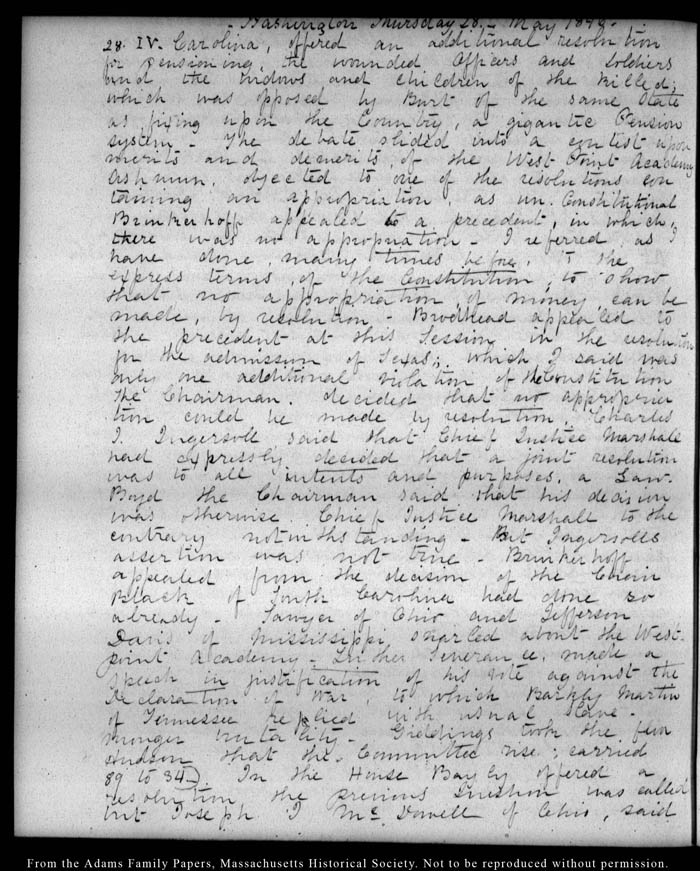 Washington Thursday 28. May 1846.
28. IV. Carolina, offered an additional resolution
for pensioning, the wounded Officers and Soldiers
and the widows and children of the killed;
which was opposed by Burt of the same State
as fixing upon the Country, a gigantic Pension
system - The debate slided into a contest upon
merits and demerits, of the West Point Academy
Ashmun, objected to one of the resolutions con
taining an appropriation, as un-Constitutional
Brinkerhoff appealed to a precedent, in which,
there was no appropriation - I referred, as I
have done, many times before, to the
express terms, of the Constitution, to show
that no appropriation of money, can be
made, by resolution - Brodhead appealed to
the precedent at this Session, in the resolution
for the admission of Texas; which I said was
only one additional violation of the Constitution
The Chairman, decided that no appropria
tion could be made by resolution. Charles
J. Ingersoll said that Chief Justice Marshall
had expressly decided that a joint resolution
was to all intents and purposes, a Law.
Boyd the Chairman said that his decision
was otherwise Chief Justice Marshall to the
contrary notwithstanding - But Ingersolls
assertion was not true - Brinkerhoff
appealed from the decision of the Chair
Black of South Carolina had done so
already - Sawyer of Ohio and Jefferson
Davis of Mississippi, snarled about the West-
point Academy - Luther Severance, made a
speech in justification of his vote against the
Declaration of War, to which Barkly Martin
of Tennessee replied with usual slave-
monger brutality - Giddings took the floor
Hudson that the Committee rise; carried
89 to 34. In the House Bayly offered a
resolution the previous Question was called
but Joseph J McDowell of Ohio, said
From the Adams Family Papers, Massachusetts Historical Society. Not to be reproduced without permission.